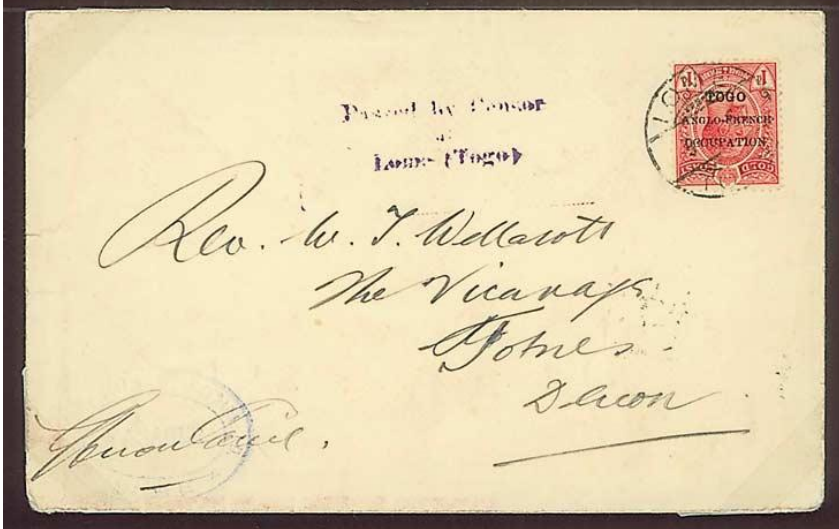 Passed by Censor
at
Lome (Togo)
TOGO
ANGLO-FRENCH
OCCUPATION
1d 1d
GOLD COAST
LOME
Rev. W. T. Wellacott
The Vicarage
Totnes
Devon